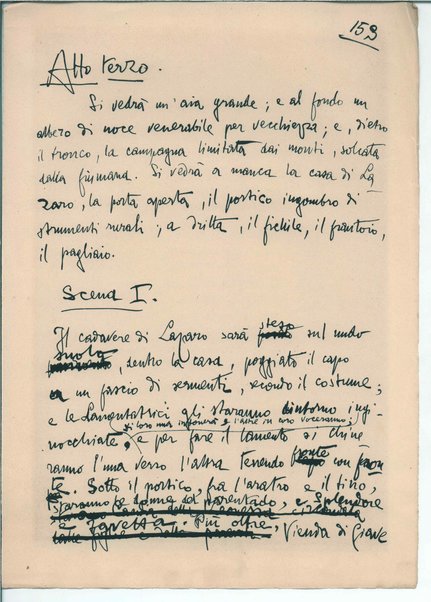 153
Atto terzo.
Si vedrà un'aia grande; e al fondo un
albero di noce venerabile per vecchiezza; e, dietro
il tronco, la campagna limitata dai monti, solcata
dalla fiumana. Si vedrà a manca la casa di La-
zaro, la porta aperta, il portico ingombro di
strumenti rurali; a dritta, il fienile, il frantoio,
il pagliaio.
Scena I.
Il cadavere di Lazaro sarà steso sul nudo
suolo, dentro la casa, poggiato il capo
a un fascio di sermenti, secondo il costume;
e le Lamentatrici gli staranno intorno ingi-
nocchiate, e per fare il lamento si chine
ranno l'una verso l'altra tenendo fronte con fron
te. Sotto il portico, fra l'aratro e il tino,
staranno le donne del parentado, e Splendore
Più oltre, Vienda di Giave